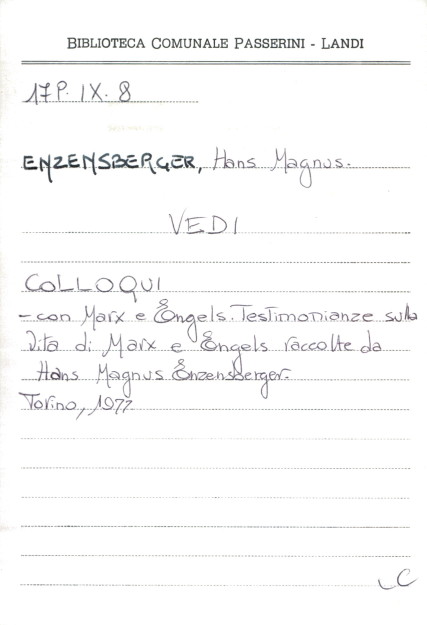 BIBLIOTECA COMUNALE PASSERINI - LANDI
17P. IX. 8
ENZENSBERGER, Hans Magnus.
VEDI
COLLOQUI
- con Marx e Engels. Testimonianze sulla
vita di Marx e Engels raccolte da
Hans Magnus Enzensberger.
Torino, 1977.